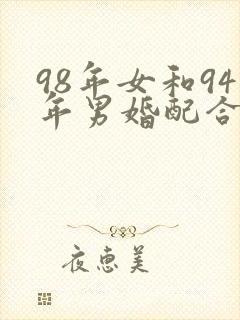 98年女和94
年男婚配合
夜恵美